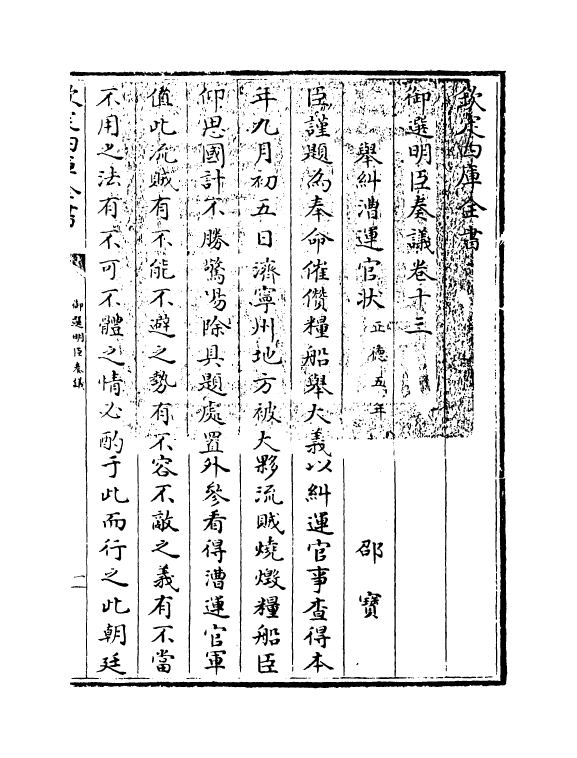 欽定四庫全書
御選明臣奏議卷十三
舉糾漕運官狀正德五年 邵寶
臣謹題為奉命催儹糧船舉大義以糾運官事查得本
年九月初五日濟寧州地方被大夥流賊燒燬糧船臣
仰思國計不勝驚惕除具題處置外參看得漕運官軍
值此流賊有不能不避之勢有不容不敵之義有不當
不用之法有不可不體之情必酌于此而行之此朝廷
欽定四庫全書
御選明臣奏議